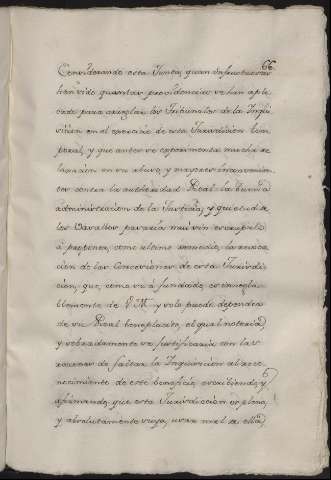 66
Considerando esta Junta, quan infructuosas
han sido quantas providencias se han apli
cado para arreglar los Tribunales de la Inqui
sicion en el exercicio de esta Jurisdiccion tem
poral, y que antes se experimenta mucha re
laxacion en su abuso, y mayores
contra la authoridad Real la buena
administracion de la Justicia, y quietud de
los Vasallos pasaria mui sin escrupulo
à proponer, como ultimo remedio, la revoca
cion de las Concesiones de esta Jurisdic
cion, que, como và fundado, es inneg
blemente de V.M. y solo puede depender
de su Real beneplacito, el qual notoria,
y sobradamente se justificaria con las
razones de faltar la Inquisicion al reco
nocimiento de este beneficio, escribiendo, y
afirmando, que esta Jurisdiccion es plena,
y absolutamente suya, usar mal de ella,